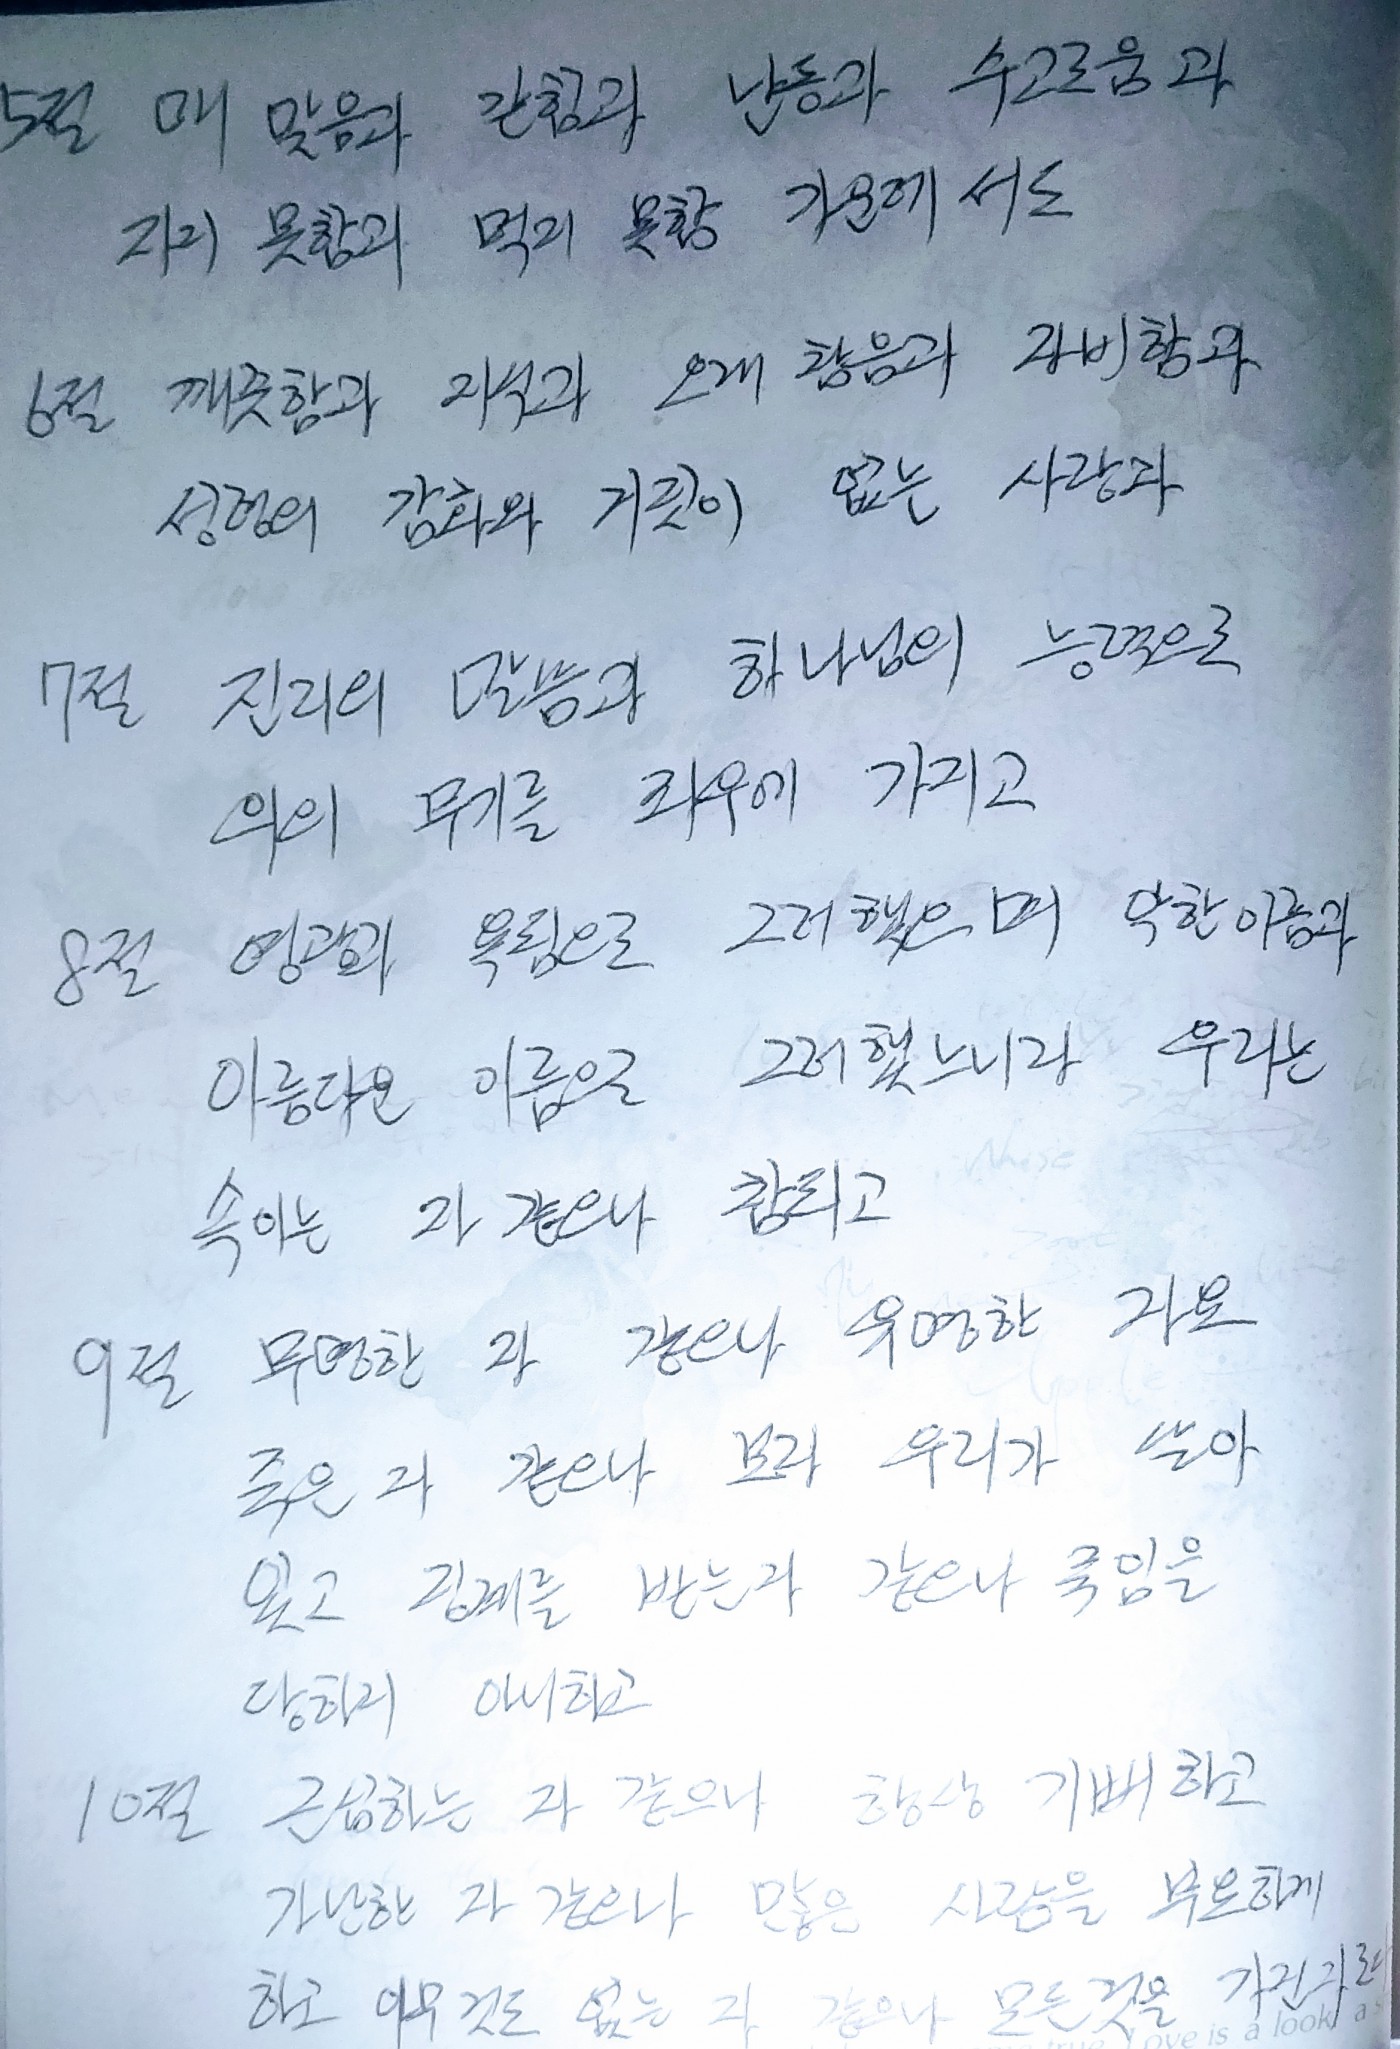 5절 매 맞음과 갇힘과 난동과 수고로움과
자지 못함과 먹지 못함 가운에서도
6절 깨끗함과 지식과 오래 참음과 자비함과
성령의 감화와 거짓이 없는 사랑과
7절 진리의 말씀과 하나님의 능력으로
의의 무기를 좌우에 가지고
8절 영광과 욕됨으로 그러했으며 악한이름과
아름다운 이름으로 그러했느니라 우리는
속이는 자 같으나 참되고
9절 무명한 자 같으나 유명한 자요
죽은 자 같으나 보라 우리가 살아
있고 징계를 받는자 같으나 죽임을
당하지 아니하고
10절 근심하는 자 같으나 항상 기뻐하고
가난한 자 같으나 많은 사람을 부요하게
하고 아무것도 없는 자 같으나 모든것을 가진자로다
Love is a look, a